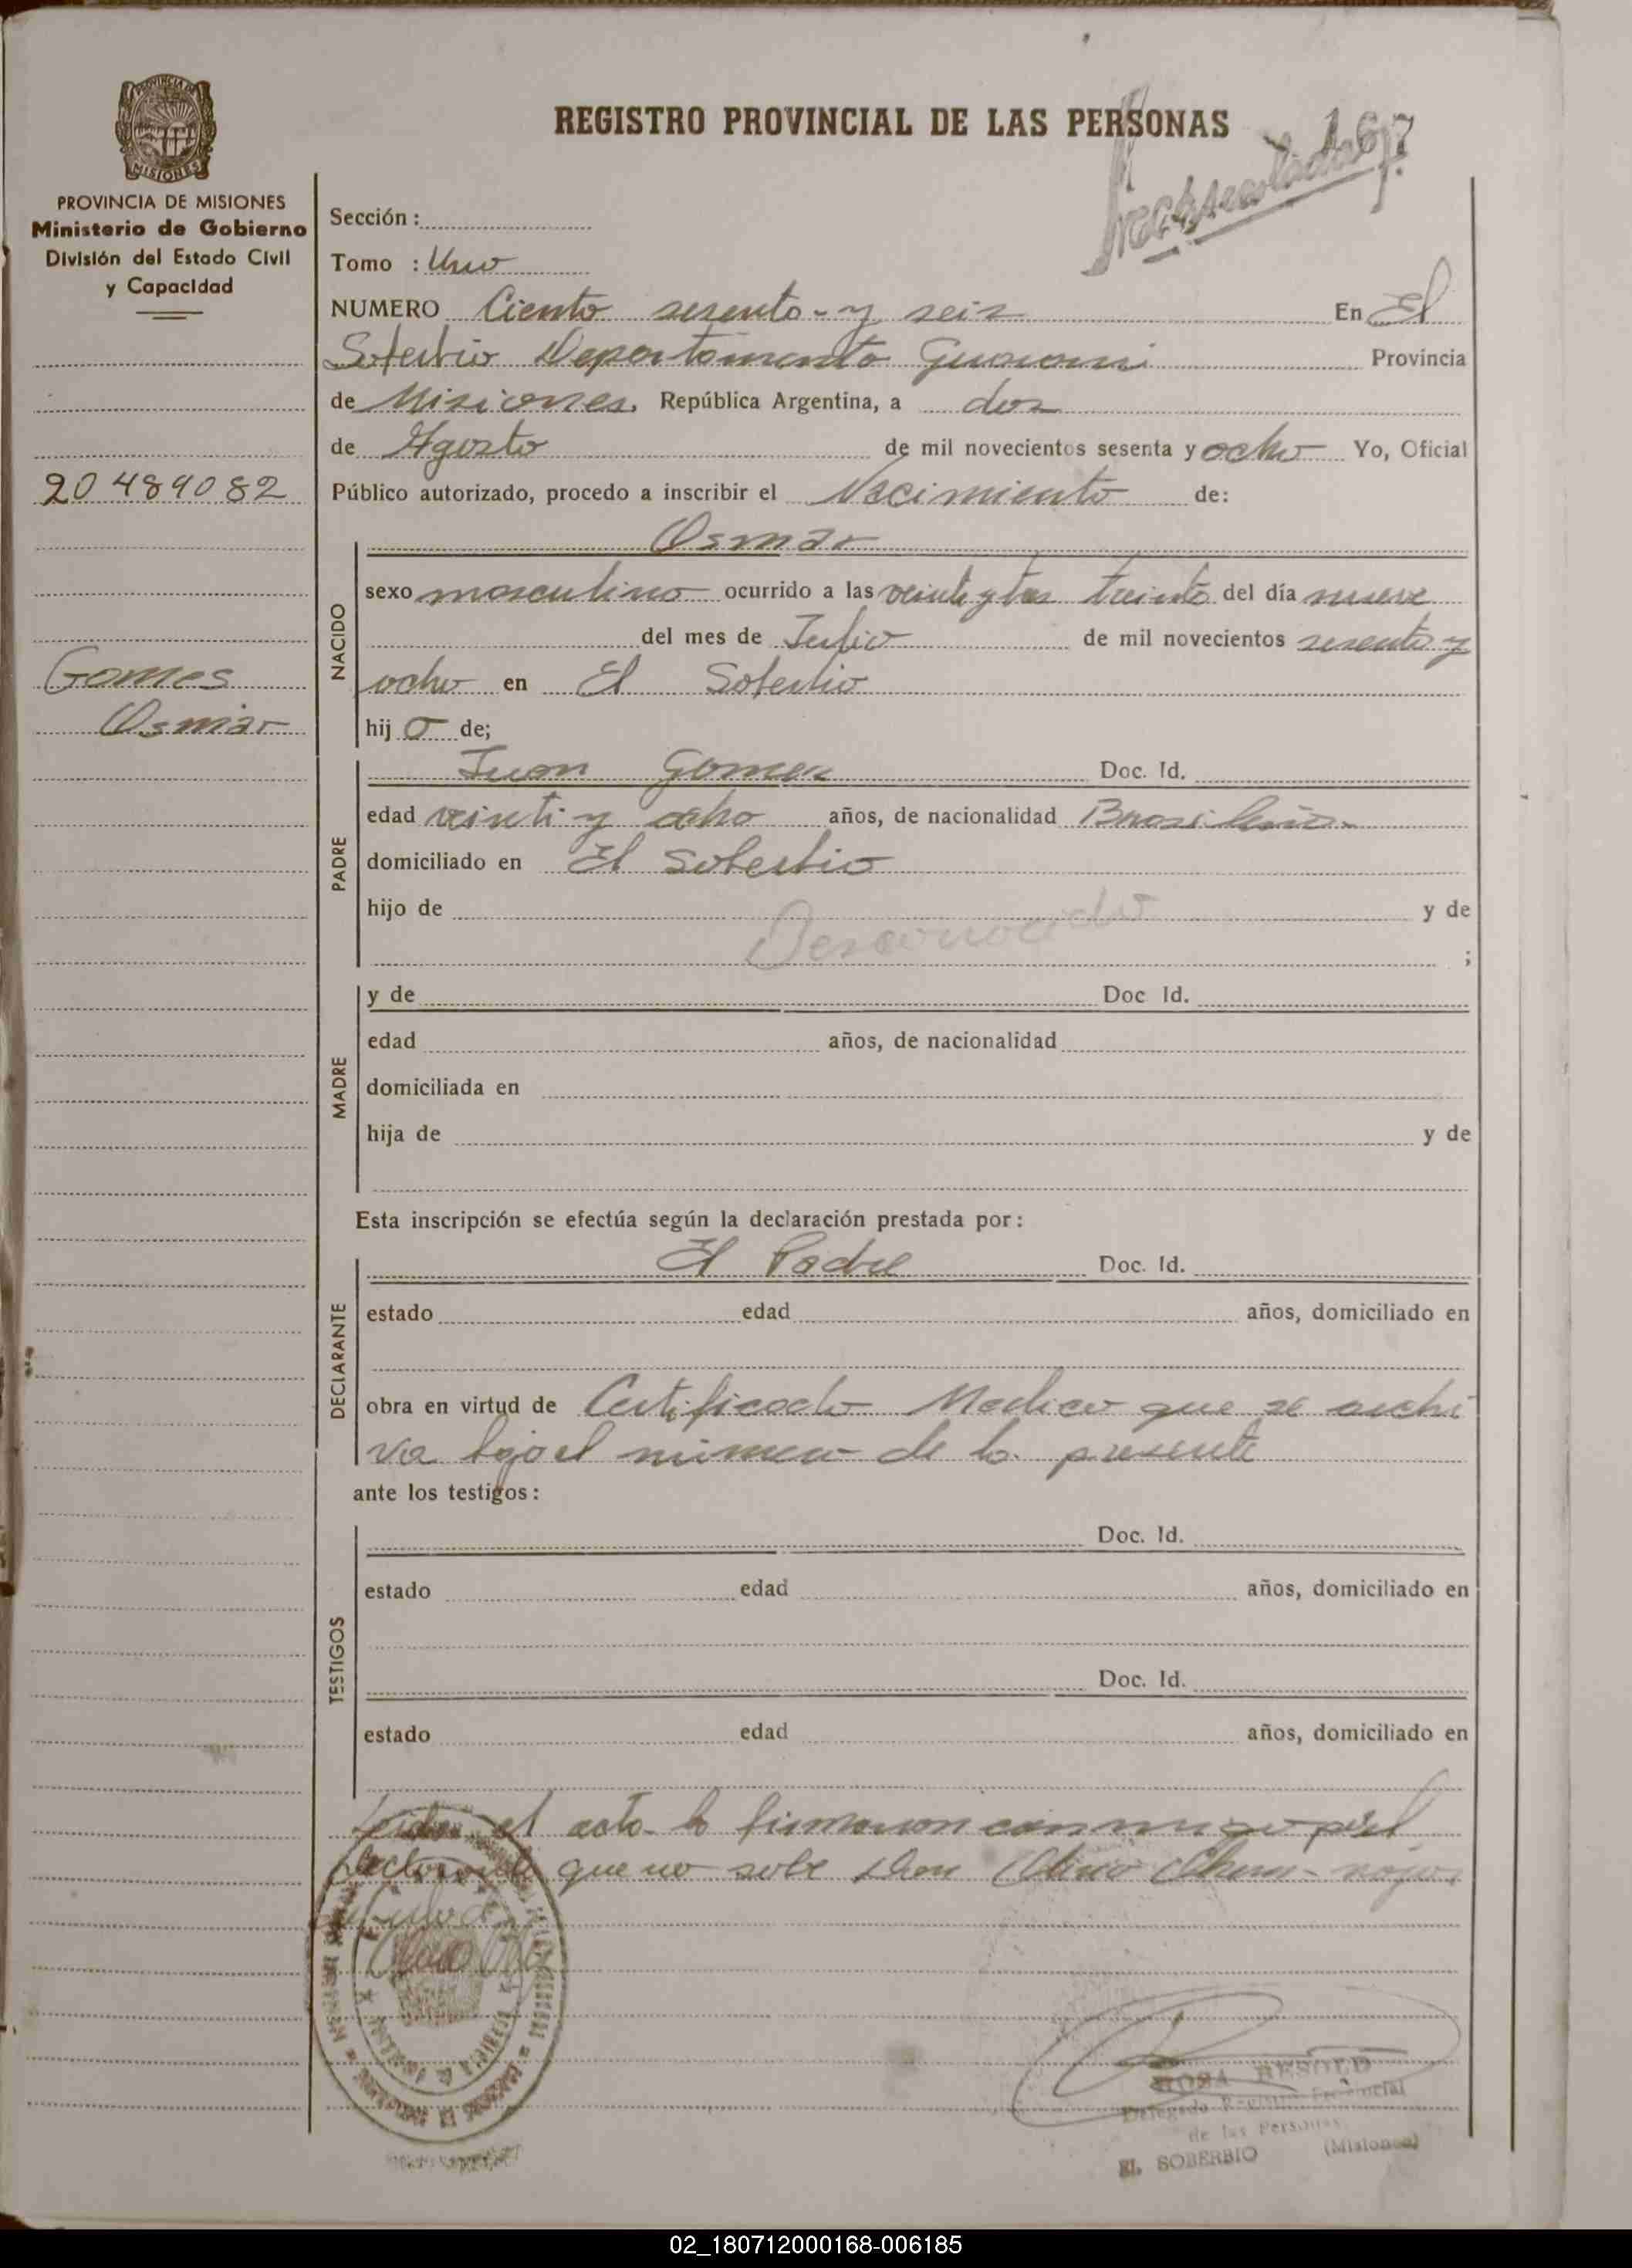 REGISTRO PROVINCIAL DE LAS PERSONAS
167
PROVINCIA DE MISIONES
Ministerio de Gobierno
División del Estado Civil
y Capacidad
Sección :
Tomo : Uno
NUMERO Ciento sesenta y seis En El
Soberbio Departamento Guarani Provincia
de Misiones, República Argentina, a dos
de Agosto de mil novecientos sesenta y ocho Yo, Oficial
20489082
Público autorizado, procedo a inscribir el Nacimiento de:
Osmar
NACIDO
sexo masculino ocurrido a las veinti y tres treinta del día nueve
del mes de Julio de mil novecientos sesenta y
ocho en El Soberbio
Gomes
Osmar
hij o de;
PADRE
Juan Gomez Doc. Id.
edad veinti y ocho años, de nacionalidad Brasileña
domiciliado en El Soberbio
hijo de y de
Desconocido
;
MADRE
y de Doc Id.
edad años, de nacionalidad
domiciliada en
hija de y de
Esta inscripción se efectúa según la declaración prestada por:
DECLARANTE
El Padre Doc. Id.
estado edad años, domiciliado en
obra en virtud de Certificado Medico que se archi
va bajo el numero de la presente
ante los testigos:
TESTIGOS
Doc. Id.
estado edad años, domiciliado en
Doc. Id.
estado edad años, domiciliado en
Leida el acta la firmaron conmigo por el
declarante que no sabe Don Olino
ROSA BESOLD
Delegada Registro Provincial
de las Personas
EL SOBERBIO (Misiones)
02_180712000168-006185